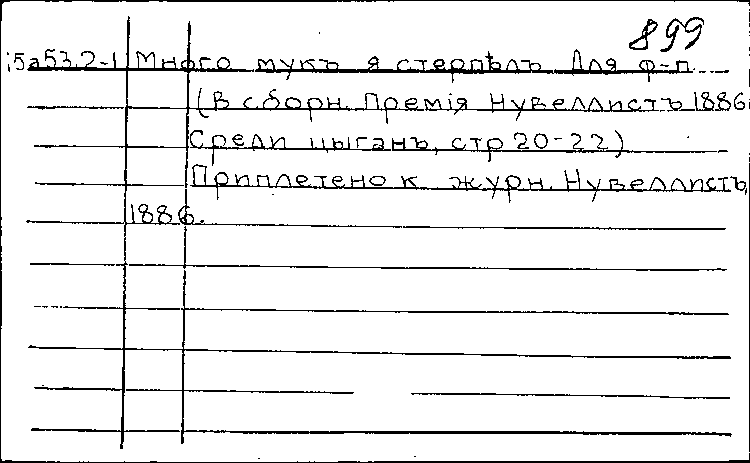 899
15а532-1 Много мукъ я стерпѣлъ Для ф-п.
(В сборн. Премія Нувеллистъ 1886
Среди цыганъ, стр 20-22)
Приплетено к журн. Нувеллистъ,
1886.